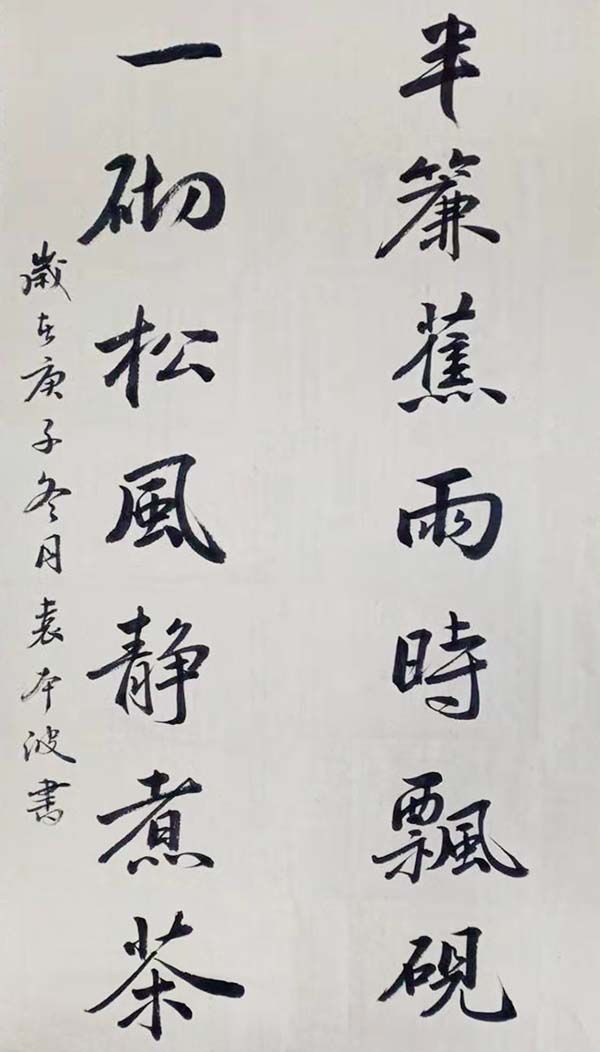 半簾蕉雨時飄硯
一砌松風静煮茶
歲在庚子冬月袁本波書